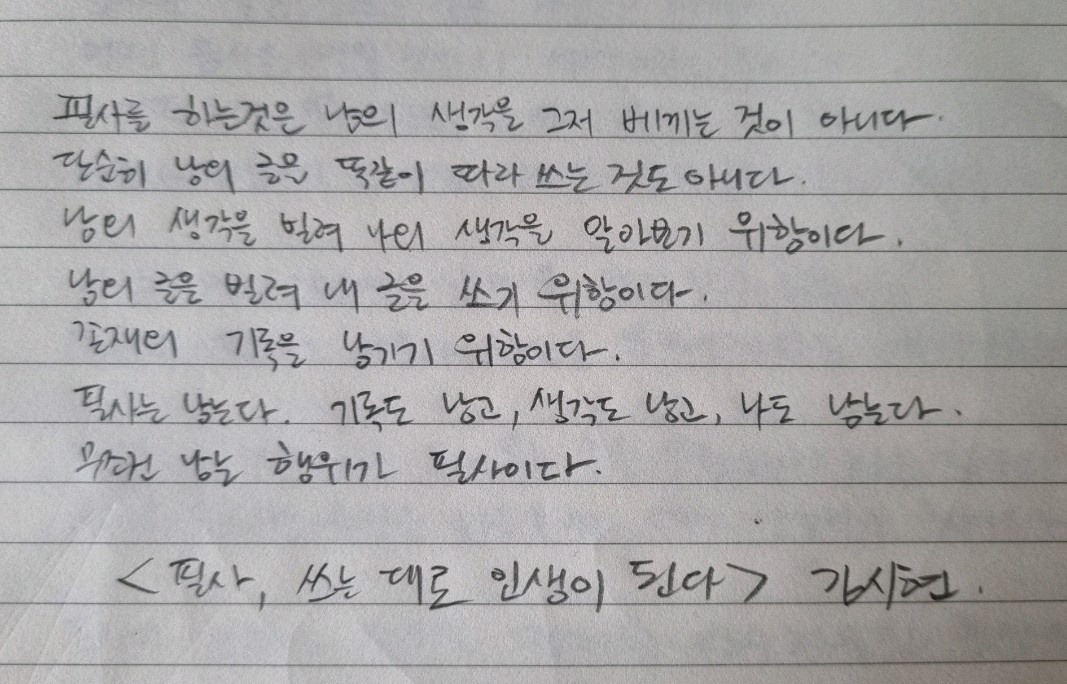 필사를 하는것은 남의 생각을 그저 베끼는 것이 아니다.
단순히 남의 글을 똑같이 따라 쓰는 것도 아니다.
남의 생각을 빌려 나의 생각을 알아보기 위함이다.
남의 글을 빌려 내 글을 쓰기 위함이다.
존재의 기록을 남기기 위함이다.
필사는 남는다. 기록도 남고, 생각도 남고, 나도 남는다.
무조건 남는 행위가 필사이다.
<필사, 쓰는 대로 인생이 된다> 김시현.